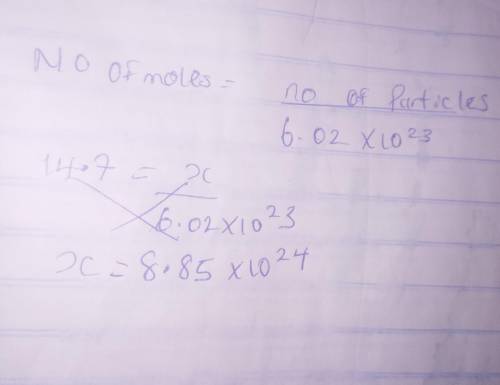 NO Of moles = no of Particles
6.02 X10²³
14.7 = x
6.02X10²3
x = 8.85 X10²⁴